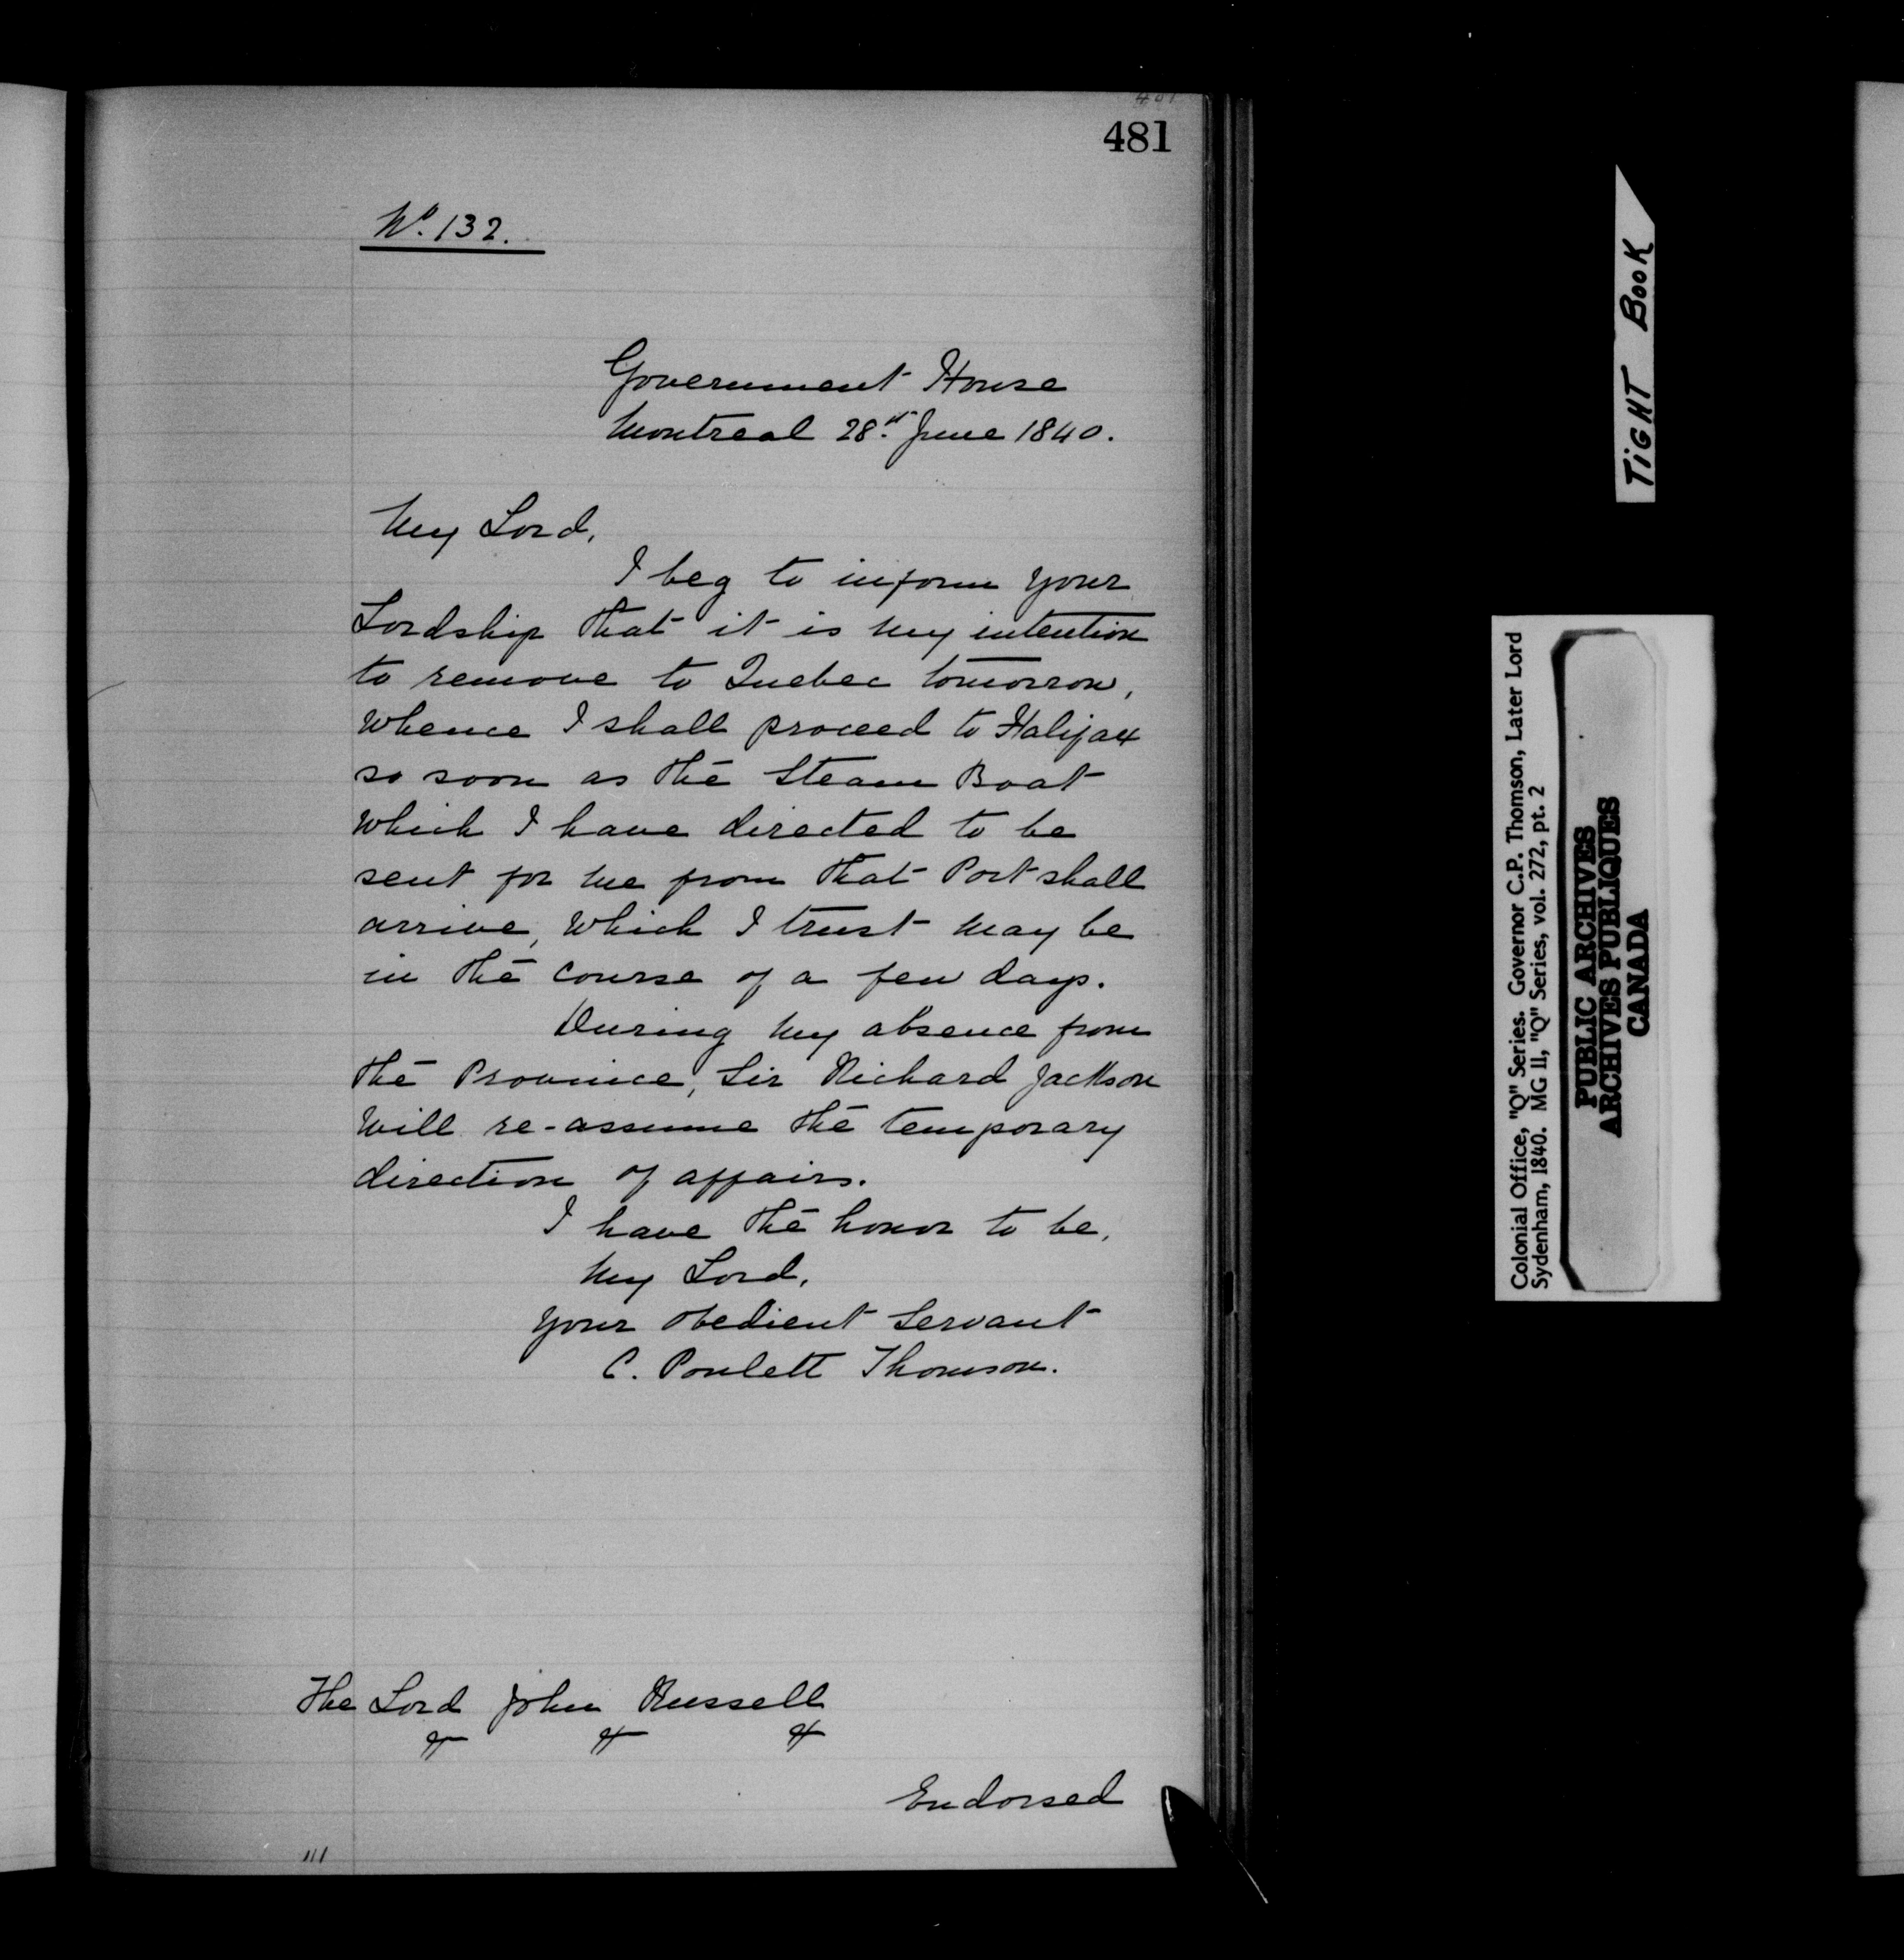 481
No. 132.
Government House
Montreal 28th June 1840.
My Lord,
I beg to inform your
Lordship that it is my intention
to remove to Quebec tomorrow,
whence I shall proceed to Halifax
so soon as the Steam Boat
which I have directed to be
sent for me from that Port shall
arrive, which I trust may be
in the course of a few days.
During my absence from
the Province, Sir Richard Jackson
will re-assume the temporary
direction of affairs.
I have the honor to be,
My Lord,
your obedient Servant
C. Poulett Thomson.
The Lord John Russell
& & &
Endorsed
TIGHT BOOK
Colonial Office, "Q" Series. Governor C.P. Thomson, Later Lord
Sydenham, 1840. MG 11, "Q" Series, vol. 272, pt. 2
PUBLIC ARCHIVES
ARCHIVES PUBLIQUES
CANADA